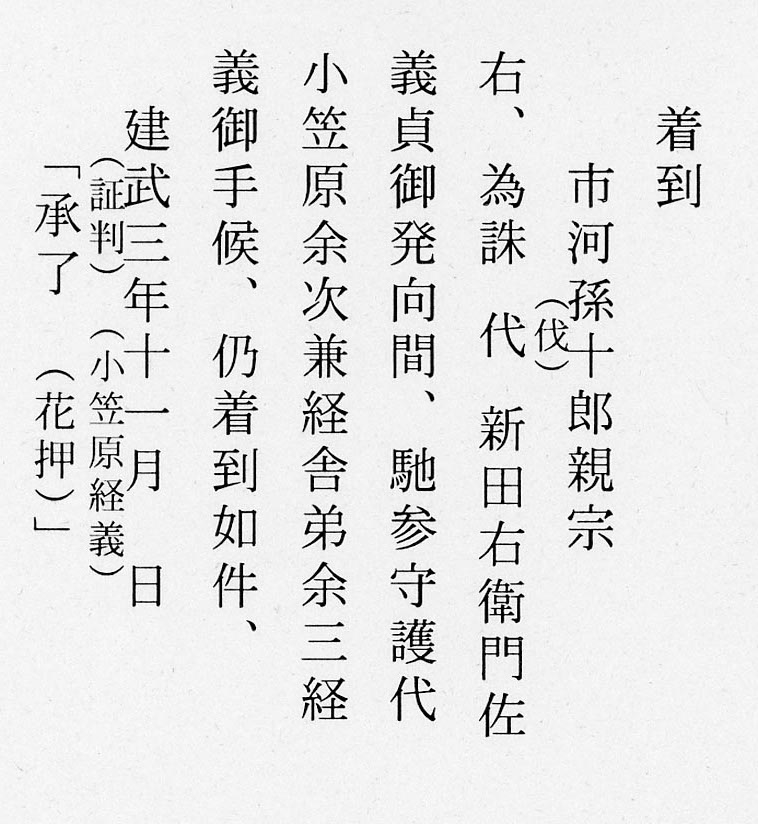 着到
市河孫十郎親宗
（伐）
右、為誅　代　新田右衛門佐
義貞御発向間、馳参守護代
小笠原余次兼経舎弟余三経
義御手候、仍着到如件、
建武三年十一月　日
（証判）（小笠原経義）
「承了　（花押）」